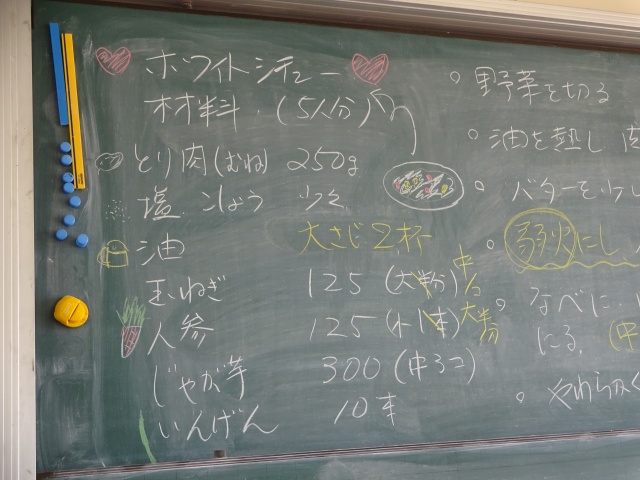 ホワイトシチュー
材料 (5人分)
とり肉(むね) 250g
塩 こしょう 少々
油 大さじ2杯
玉ねぎ 125 (大半分) 中1
人参 125 (小1本) 大半分
じゃが芋 300 (中3コ)
いんげん 10本
○野菜を切る
○油を熱し
○バターを
○弱火にし
○なべに
にる。(中
○やわらかく